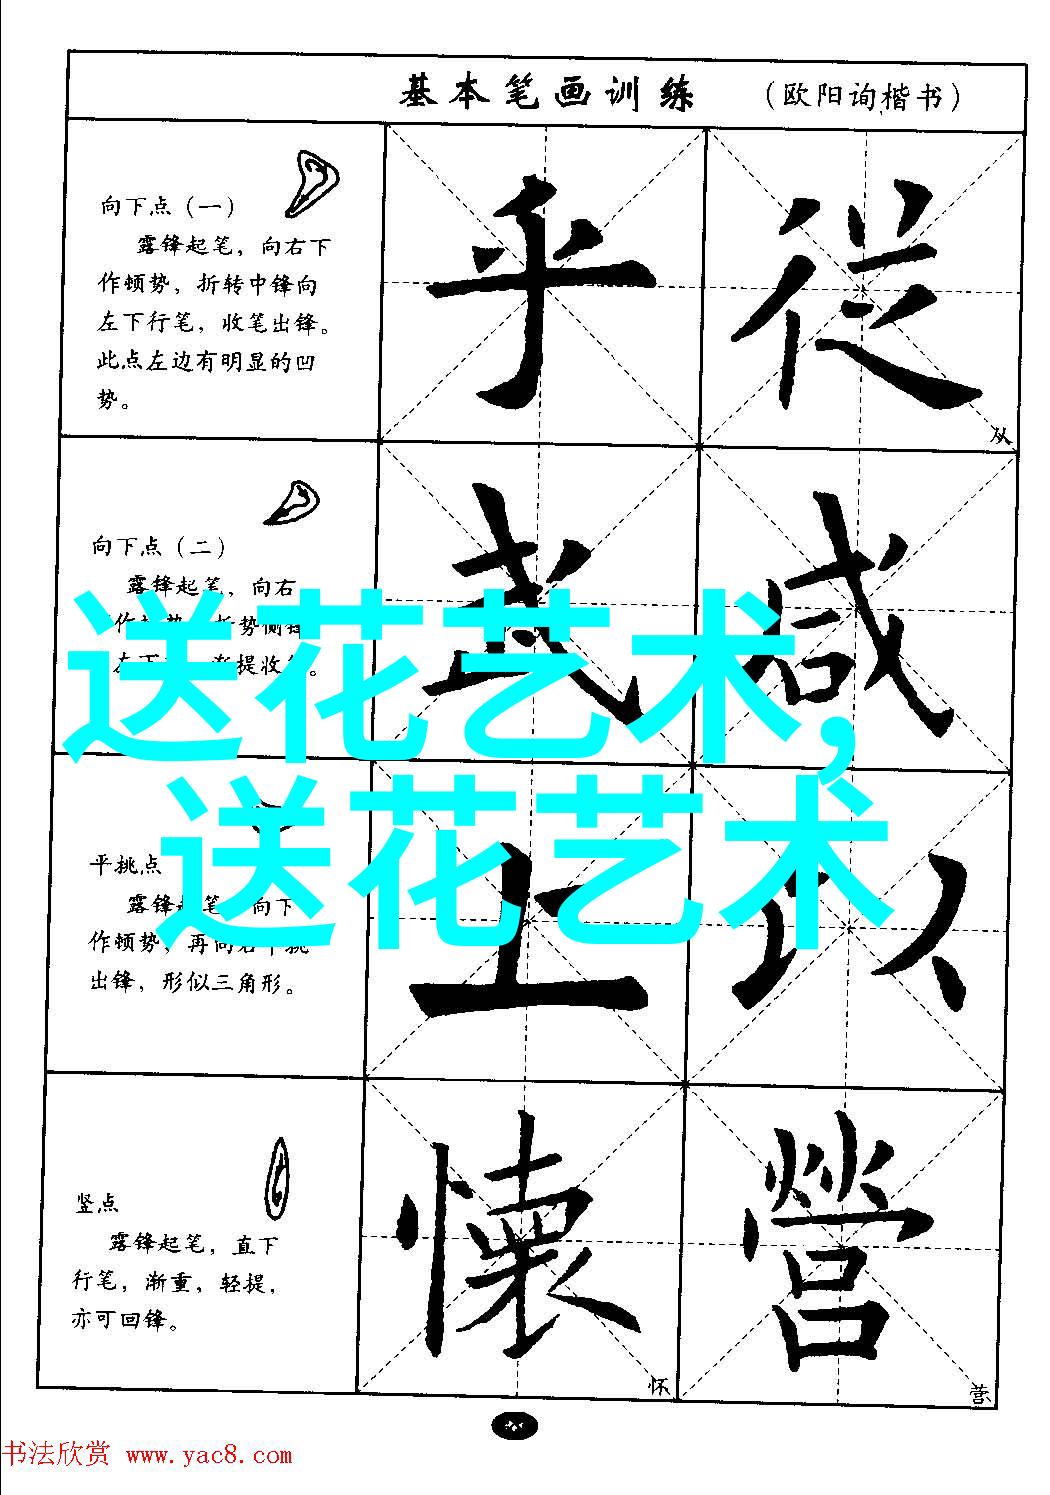 基本笔画训练 （欧阳询楷书）
向下点（一）
露锋起笔，向右下
作顿势，折转中锋向
左下行笔，收笔出锋。
此点左边有明显的凹
势。
乎 從
从
向下点（二）
露锋起笔，向右
左下 提收 。
武 咸
送花艺术,
送花艺术
平挑点
露锋起笔，向下
作顿势，再向右
出锋，形似三角形。
上 以
竖点
露锋起笔，直下
行笔，渐重，轻提，
亦可回锋。
懷 營
怀 营
书法欣赏 www.yac8.com